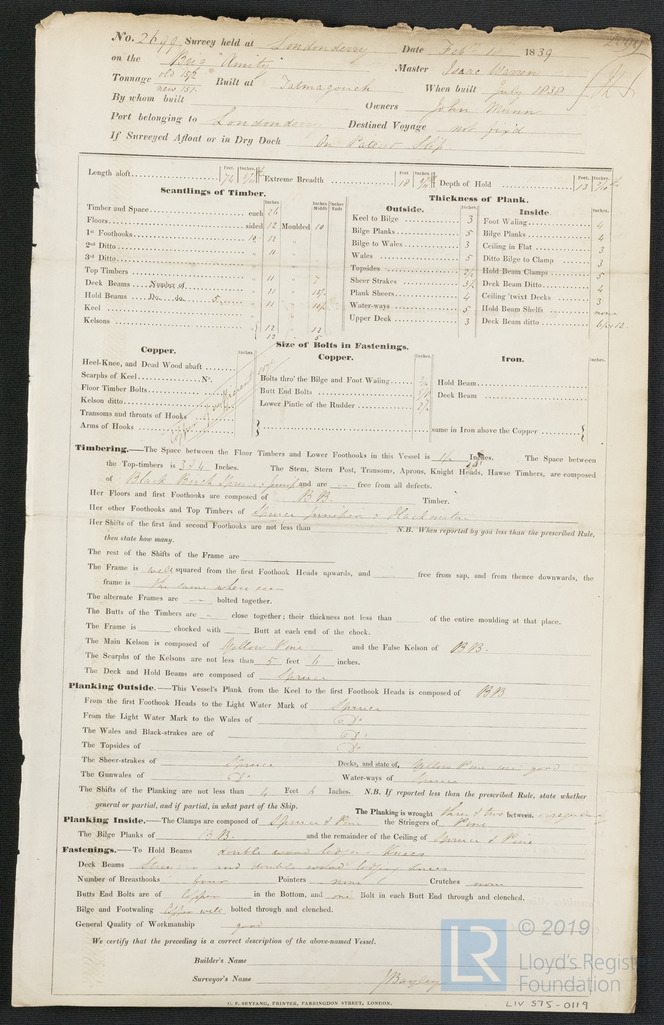 No. 2699 Survey held at Londonderry Date Feby 1839
on the Brig "Amity" Master Isaac Warren
Tonnage old 152 new 151 Built at Tatmagouch When built July 1838
By whom built Owners John Munn
Port belonging to Londonderry Destined Voyage not fix'd
If Surveyed Afloat or in Dry Dock On Patent Slip
Length aloft 74 Extreme Breadth 18 Depth of Hold 13
Scantlings of Timber. Thickness of Plank.
Outside. Inside
Timber and Space each 26 Keel to Bilge 3 Foot Waling 4
Floors sided 12 Moulded 10 Bilge Planks 5 Bilge Planks 4
1st Foothooks 11 Bilge to Wales 3 Ceiling in Flat 3
2nd Ditto 11 Wales 5 Ditto Bilge to Clamp 3
3rd Ditto Topsides 2½ Hold Beam Clamps 5
Top Timbers 11 7 Sheer Strakes Deck Beam Ditto 4
Deck Beams Number of 11 Plank Sheers 4 Ceiling 'twixt Decks 3
Hold Beams Do. do. 5 11 Water-ways 5 Hold Beam Shelfs none
Keel 12 12 Upper Deck 3 Deck Beam ditto
Kelsons 12
Size of Bolts in Fastenings.
Copper. Copper. Iron.
Heel-Knee, and Dead Wood abaft
Scarphs of Keel No. Bolts thro' the Bilge and Foot Waling Hold Beam
Floor Timber Bolts Butt End Bolts Deck Beam
Kelson ditto Lower Pintle of the Rudder
Transoms and throats of Hooks
Arms of Hooks same in Iron above the Copper
Timbering.—The Space between the Floor Timbers and Lower Foothooks in this Vessel is 1½ Inches. The Space between
the Top-timbers is 3 & 4 Inches. The Stem, Stern Post, Transoms, Aprons, Knight Heads, Hawse Timbers, are composed
of Black Birch Spruce and are — free from all defects.
Her Floors and first Foothooks are composed of BB. Timber.
Her other Foothooks and Top Timbers of Spruce Juniper & Hackmatac
Her Shifts of the first and second Foothooks are not less than N.B. When reported by you less than the prescribed Rule,
then state how many.
The rest of the Shifts of the Frame are
The Frame is well squared from the first Foothook Heads upwards, and free from sap, and from thence downwards, the
frame is the same where seen
The alternate Frames are — bolted together.
The Butts of the Timbers are — close together; their thickness not less than of the entire moulding at that place.
The Frame is chocked with Butt at each end of the chock.
The Main Kelson is composed of Yellow Pine and the False Kelson of BB.
The Scarphs of the Kelsons are not less than 5 feet 6 inches.
The Deck and Hold Beams are composed of Spruce
Planking Outside.—This Vessel's Plank from the Keel to the first Foothook Heads is composed of BB
From the first Foothook Heads to the Light Water Mark of Spruce
From the Light Water Mark to the Wales of Do
The Wales and Black-strakes are of Do
The Topsides of Do
The Sheer-strakes of Spruce Decks, and state of, Yellow Pine and good
The Gunwales of Do Water-ways of Spruce
The Shifts of the Planking are not less than 4 Feet 6 Inches. N.B. If reported less than the prescribed Rule, state whether
general or partial, and if partial, in what part of the Ship.
The Planking is wrought three & two between.
Planking Inside.—The Clamps are composed of Spruce & Pine the Stringers of Pine
The Bilge Planks of BB. and the remainder of the Ceiling of Spruce & Pine
Fastenings.—To Hold Beams double wood lodging knees
Deck Beams and double wood lodging knees
Number of Breasthooks four Pointers none Crutches none
Butts End Bolts are of Copper in the Bottom, and one Bolt in each Butt End through and clenched.
Bilge and Footwaling Copper well bolted through and clenched.
General Quality of Workmanship good
We certify that the preceding is a correct description of the above-named Vessel.
Builder's Name
Surveyor's Name J Bayley
C. F. SEYFANG, PRINTER, FARRINGDON STREET, LONDON.
LIV 575-0119
LR © 2019
Lloyd's Register
Foundation